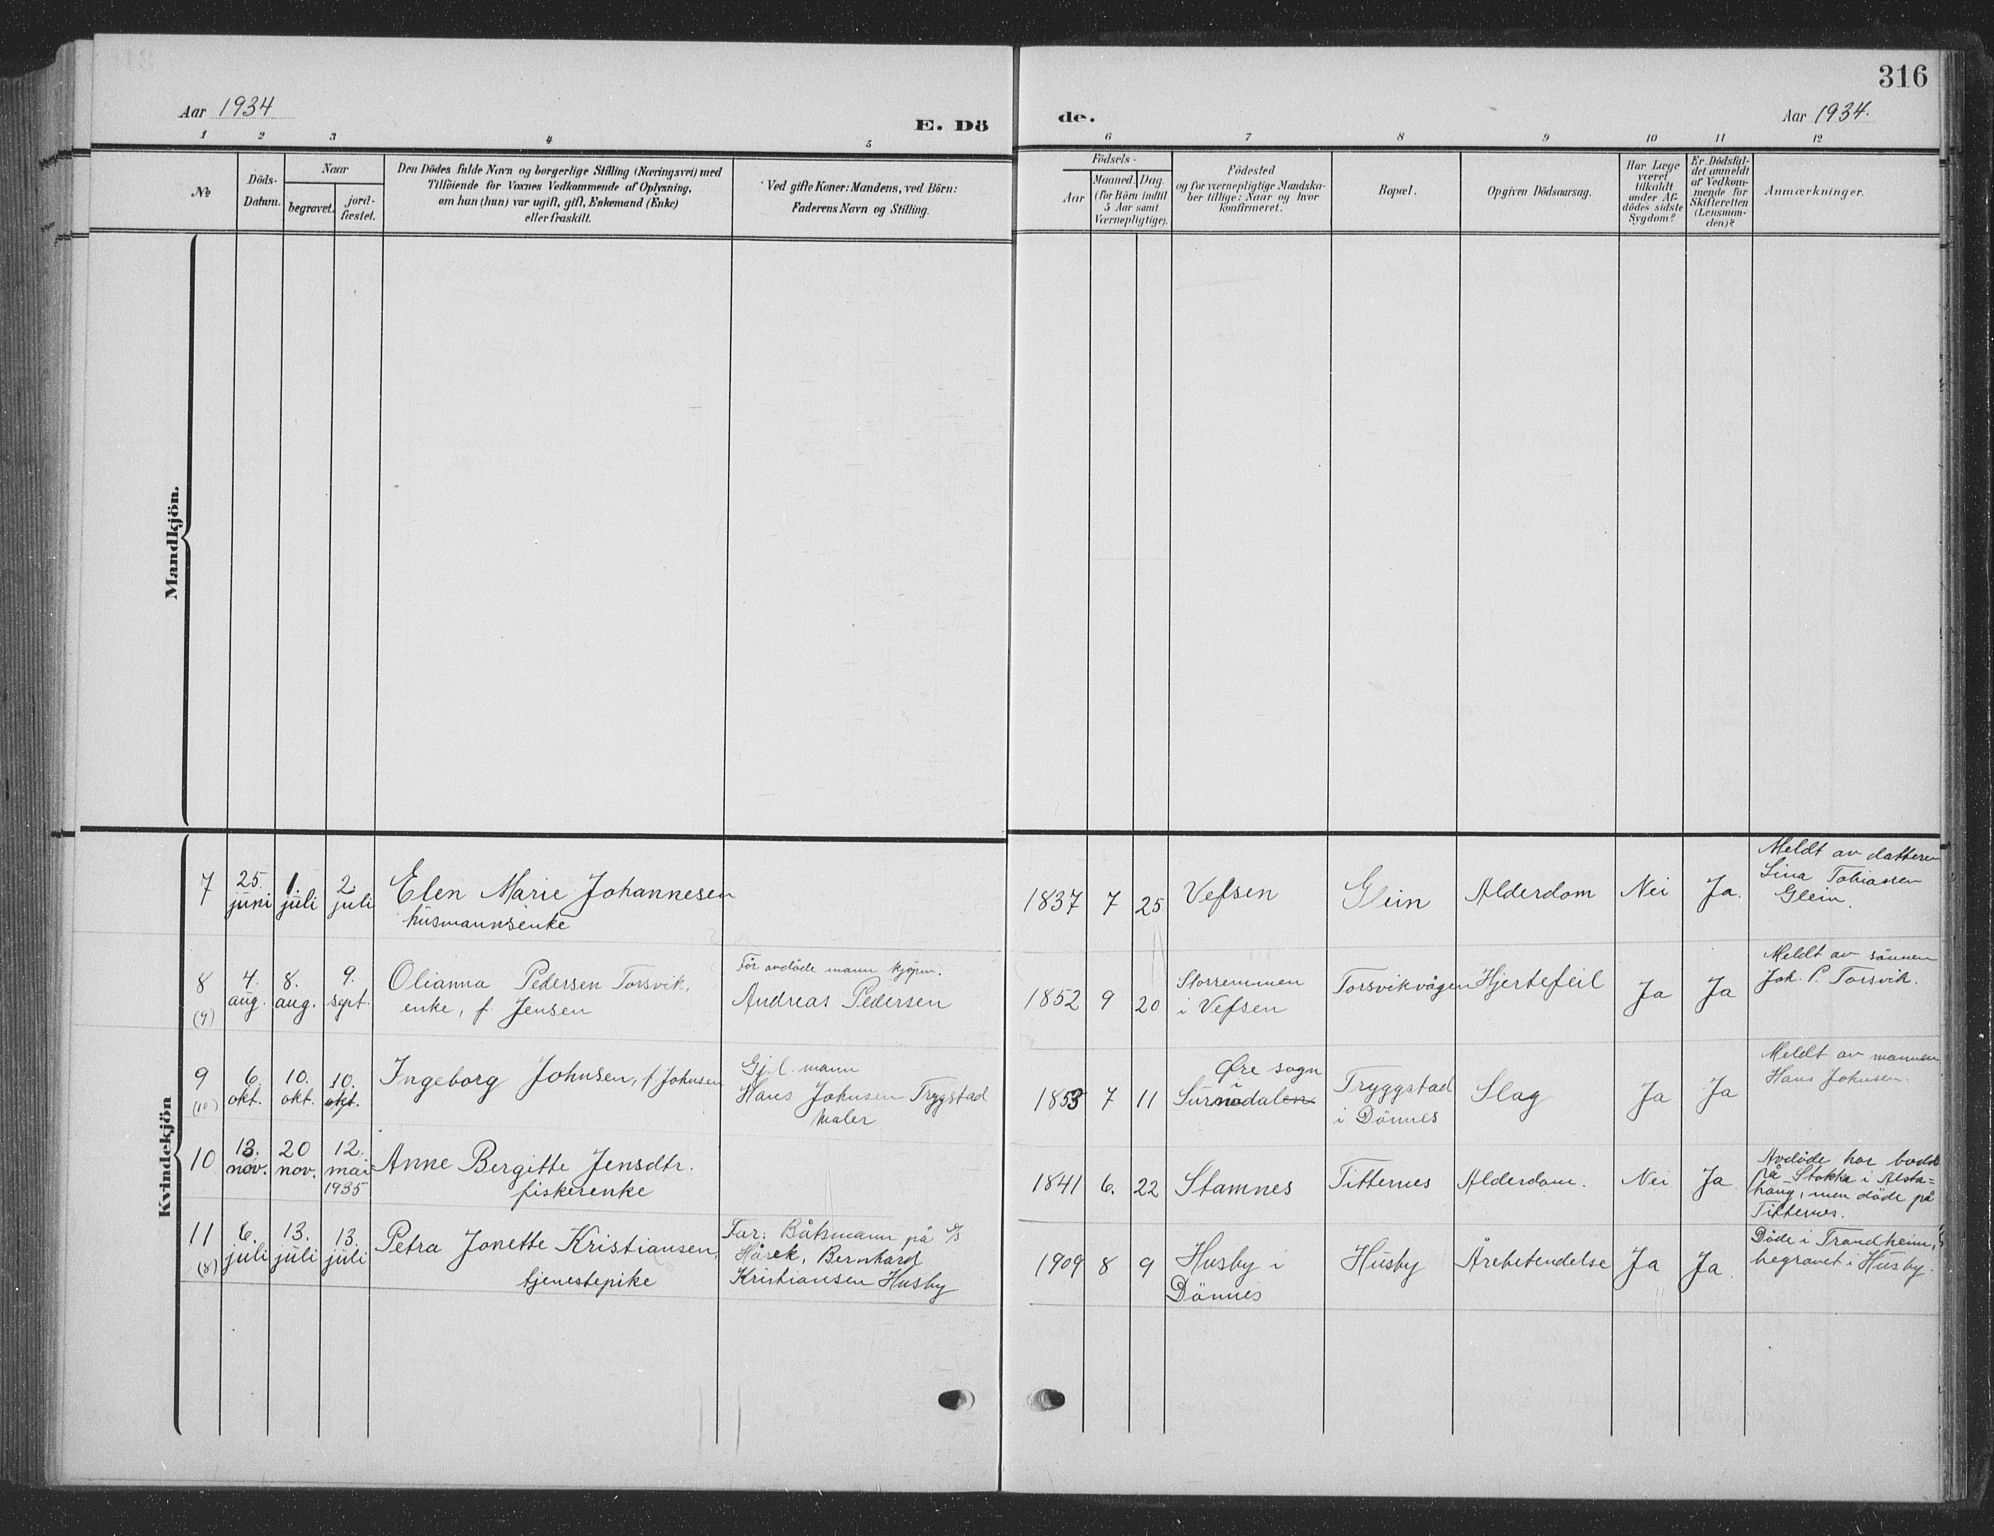 316
Aar 1934
E. Dö
de.
Aar 1934.
1 2 3 4 5
6 7 8 9 10 11 12
№
Döds-
Datum.
Naar
begravet.
jord-
fæstet.
Den Dödes fulde Navn og borgerlige Stilling (Næringsvei) med
Tilföiende for Voxnes Vedkommende af Oplysning,
om han (hun) var ugift, gift, Enkemand (Enke)
eller fraskilt.
Ved gifte Koner: Mandens, ved Börn:
Faderens Navn og Stilling.
Födsels-
Aar
Maaned. Dag.
(for Börn indtil
5 Aar samt
Værnepligtige).
Födested
og for værnepligtige Mandska-
ber tillige: Naar og hvor
konfirmeret.
Bopæl.
Opgiven Dödsaarsag.
Har Læge
været
tilkaldt
under Af-
dödes sidste
Sygdom?
Er Dödsfal-
det anmeldt
af Vedkom-
mende for
Skifteretten
(Lensman-
den)?
Anmærkninger.
Mandkjön.
Kvindekjön
7
25.
juni
1.
juli
2.
juli
Elen Marie Johannesen
husmannsenke
1837 7 25
Vefsen
Glein
Alderdom
Nei
Ja.
Meldt av datteren
Lina Tobiassen
Glein.
8
(9)
4.
aug.
8.
aug.
9.
sept.
Olianna Pedersen Torsvik,
enke, f. Jensen
Før avdøde mann kjøpm.
Andreas Pedersen
1852 9 20
Storremmen
i Vefsen
Torsvikvågen
Hjertefeil
Ja
Ja
Meldt av sönnen
Joh. P. Torsvik.
9
(10)
6.
okt.
10.
okt.
10.
okt.
Ingeborg Johnsen, f. Johnsen
Gjl. mann
Hans Johnsen Tryggstad
maler
1853 7 11
Øre sogn
i
Surnadalen
Tryggstad
i Dönnes
Slag
Ja
Ja
Meldt av mannen
Hans Johnsen.
10
13.
nov.
20
nov.
12.
mai
1935
Anne Bergitte Jensdtr.
fiskerenke
1841 6. 22
Stamnes
Titternes
Alderdom.
Nei
Ja
Avdøde har bodd
på Stokka i Alsta-
haug, men døde på
Titternes.
11
(8)
6.
juli
13.
juli
13.
juli
Petra Jonette Kristiansen,
tjenestepike
Far: Båtsmann på o/s
Hårek, Bernhard
Kristiansen Husby
1909 8 9
Husby i
Dönnes
Husby
Årebetendelse
Ja
Ja.
Døde i Trondheim,
begravet i Husby.